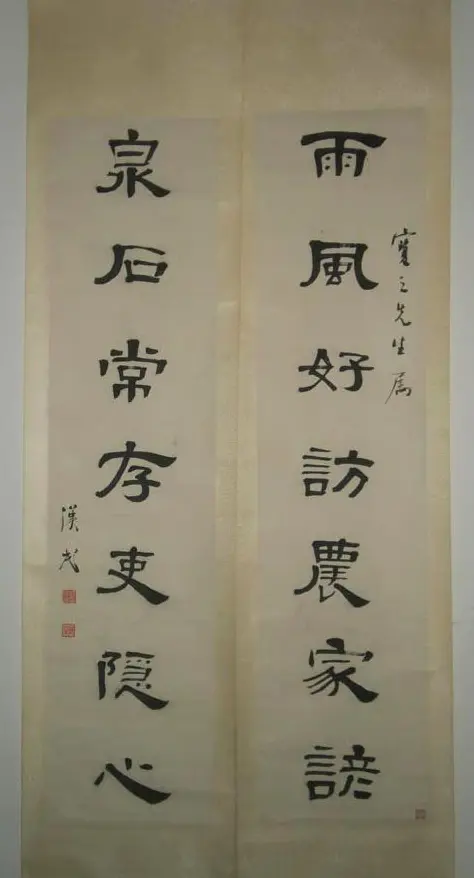 雨風好訪農家諺
寶之先生属
泉石常存吏隱心
漢民